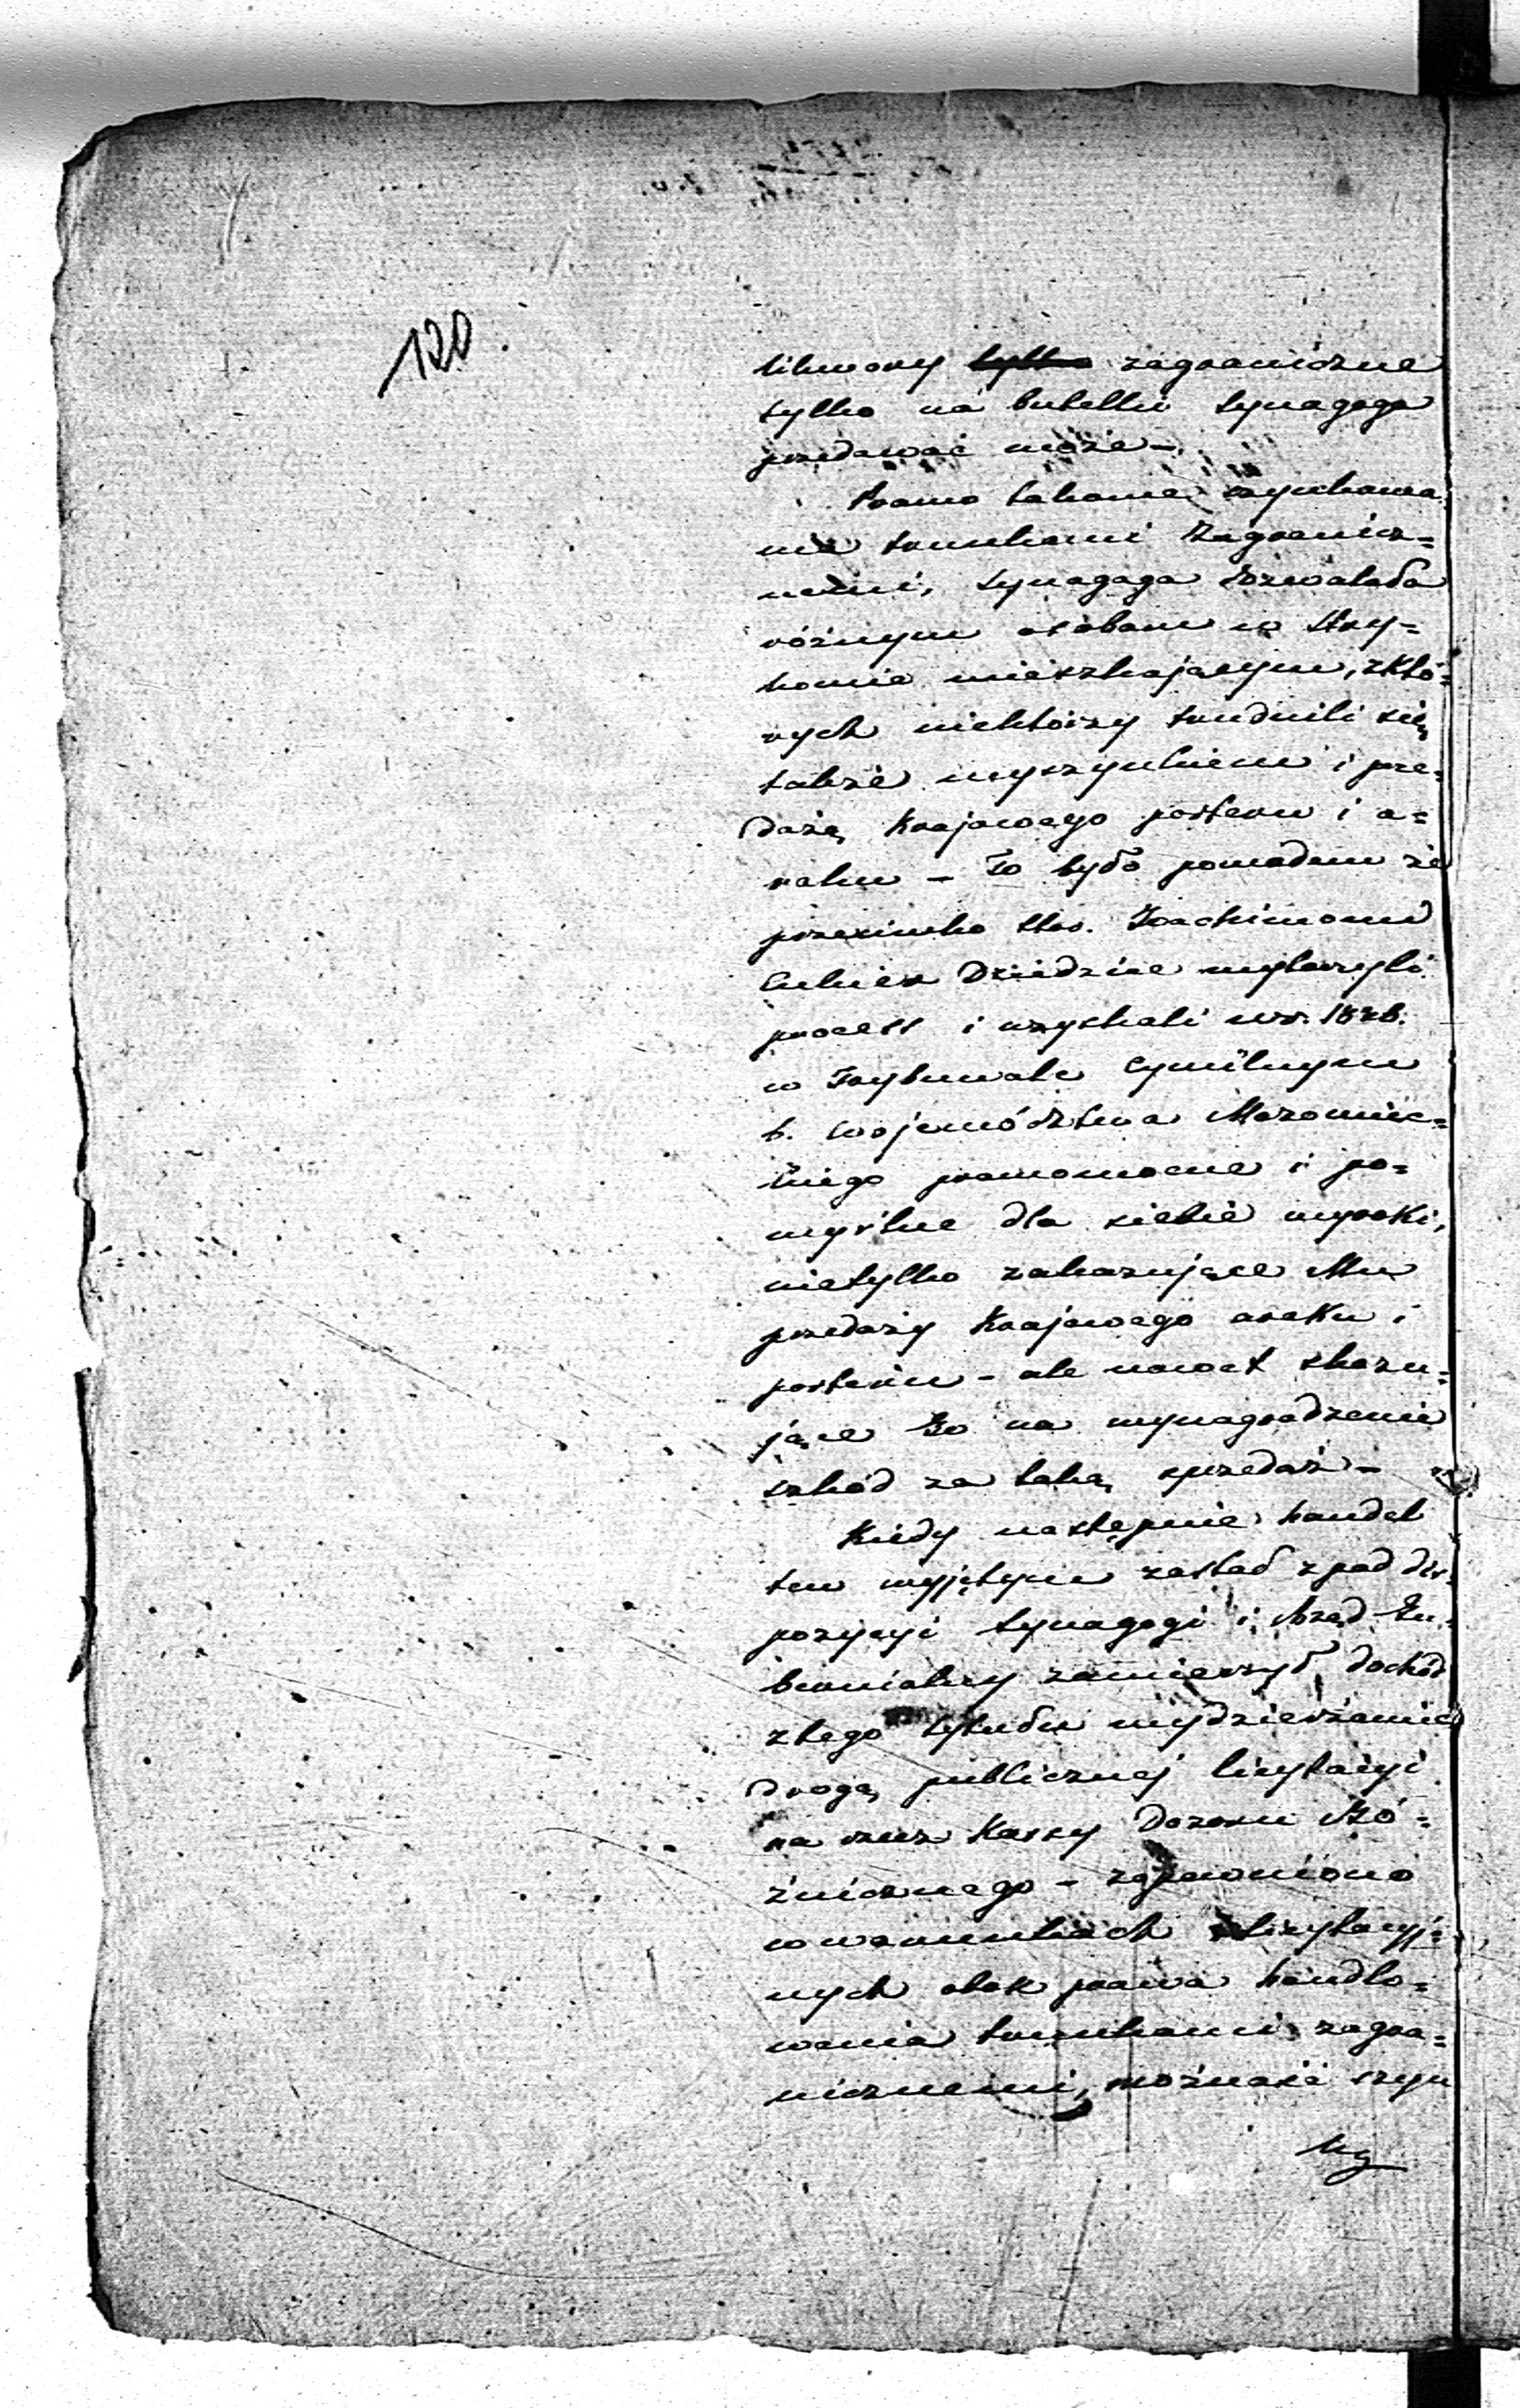 120.
likwory tylko zagraniczne
tylko na butelki Synagoga
przedawać może –
Prawo takowe szynkowa
nia trunkami Zagranicz=
nemi, Synagoga dozwalała
różnym osobom w Stry=
kowie mieszkającym, z któ=
rych niektórzy trudnili się
także wyszynkiem i prze=
dażą Krajowego porteru i a=
raku – To było powodem że
przeciwko Sta. Joachimowi
Dziedzice wytoczyli
process i uzyskali w r. 1826.
w Trybunale Cywilnym
b. Województwa Mazowiec=
kiego prawomocne i po=
myślne dla siebie wyroki,
nietylko zakazujące Mu
przedaży Krajowego araku i
porteru – ale nawet skazu=
jące Go na wynagrodzenie
szkód za taką sprzedaż –
Kiedy następnie handel
ten wyjętym został z pod dys=
pozycyi Synagogi i Rząd Gu=
bernialny zamierzył dochód
z tego tytułu wydzierżawić
drogą publicznej licytacyi
na rzecz Kassy Dozoru Bó=
żniczego – zapewniono
w warunkach licytacyj=
nych obok prawa handlo=
wania trunkami zagra=
nicznemi, możność szyn